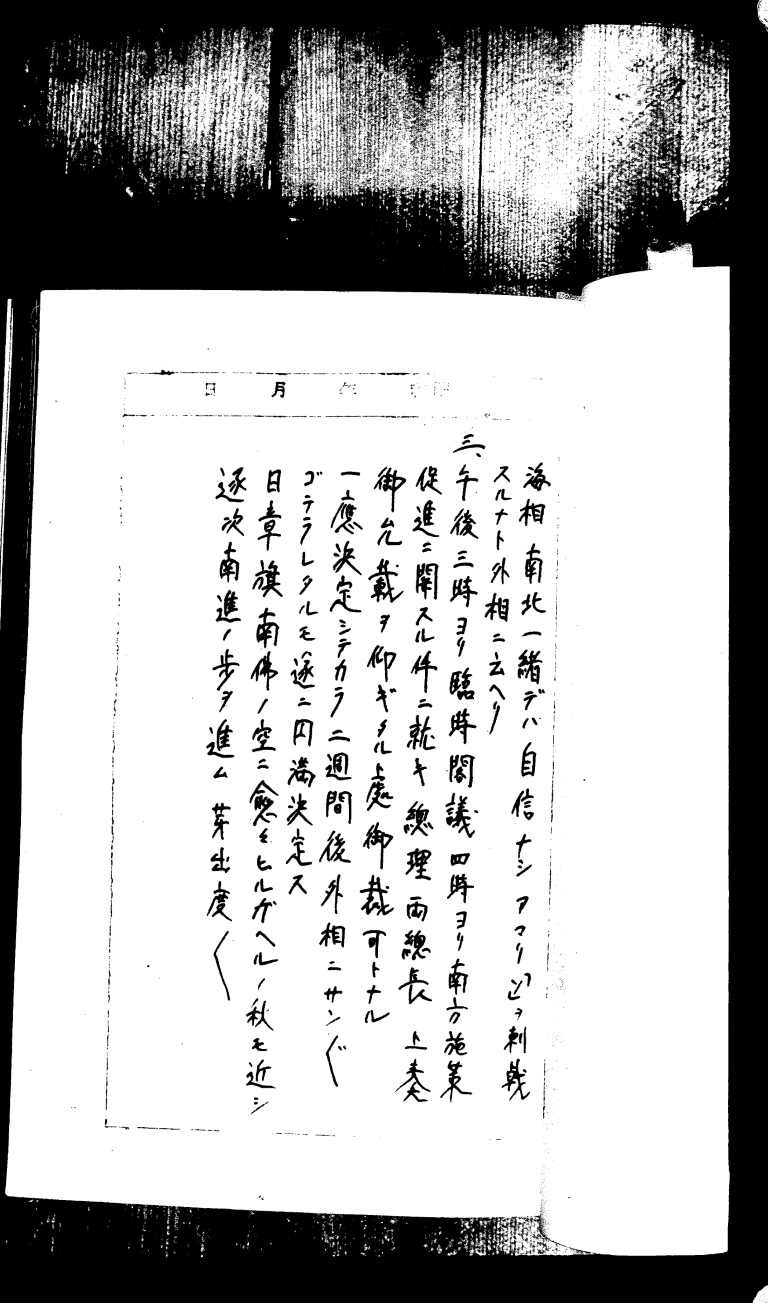 年 月 日
海相 南北一緒デハ自信ナシ アマリ「ソ」ヲ刺戟
スルナト外相ニ云ヘリ
三、午後三時ヨリ臨時閣議 四時ヨリ南方施策
促進ニ関スル件ニ就キ総理両総長 上奏
御允裁ヲ仰ギタル處御裁可トナル
一應決定シテカラ二週間後外相ニサン〴〵
ゴテラレタルモ遂ニ円満決定ス
日章旗南佛ノ空ニ愈々ヒルガヘルノ秋モ近シ
逐次南進ノ歩ヲ進ム 芽出度〱